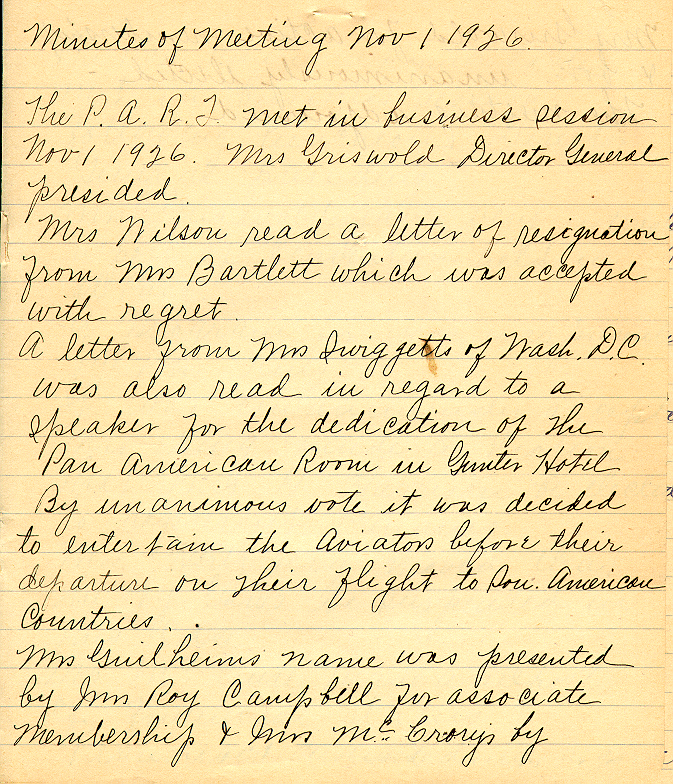 Minutes of Meeting Nov 1 1926.
The P. A. R. T. met in business session
Nov 1 1926. Mrs Griswold Director General
presided.
Mrs Wilson read a letter of resignation
from Mrs Bartlett which was accepted
with regret.
A letter from Mrs Swiggetts of Wash. D.C.
was also read in regard to a
speaker for the dedication of the
Pan American Room in Gunter Hotel
By unanimous vote it was decided
to entertain the Aviators before their
departure on their flight to Pan. American
Countries.
Mrs Guilheims name was presented
by Mrs Roy Campbell for associate
Membership & Mrs Mc. Crorys by